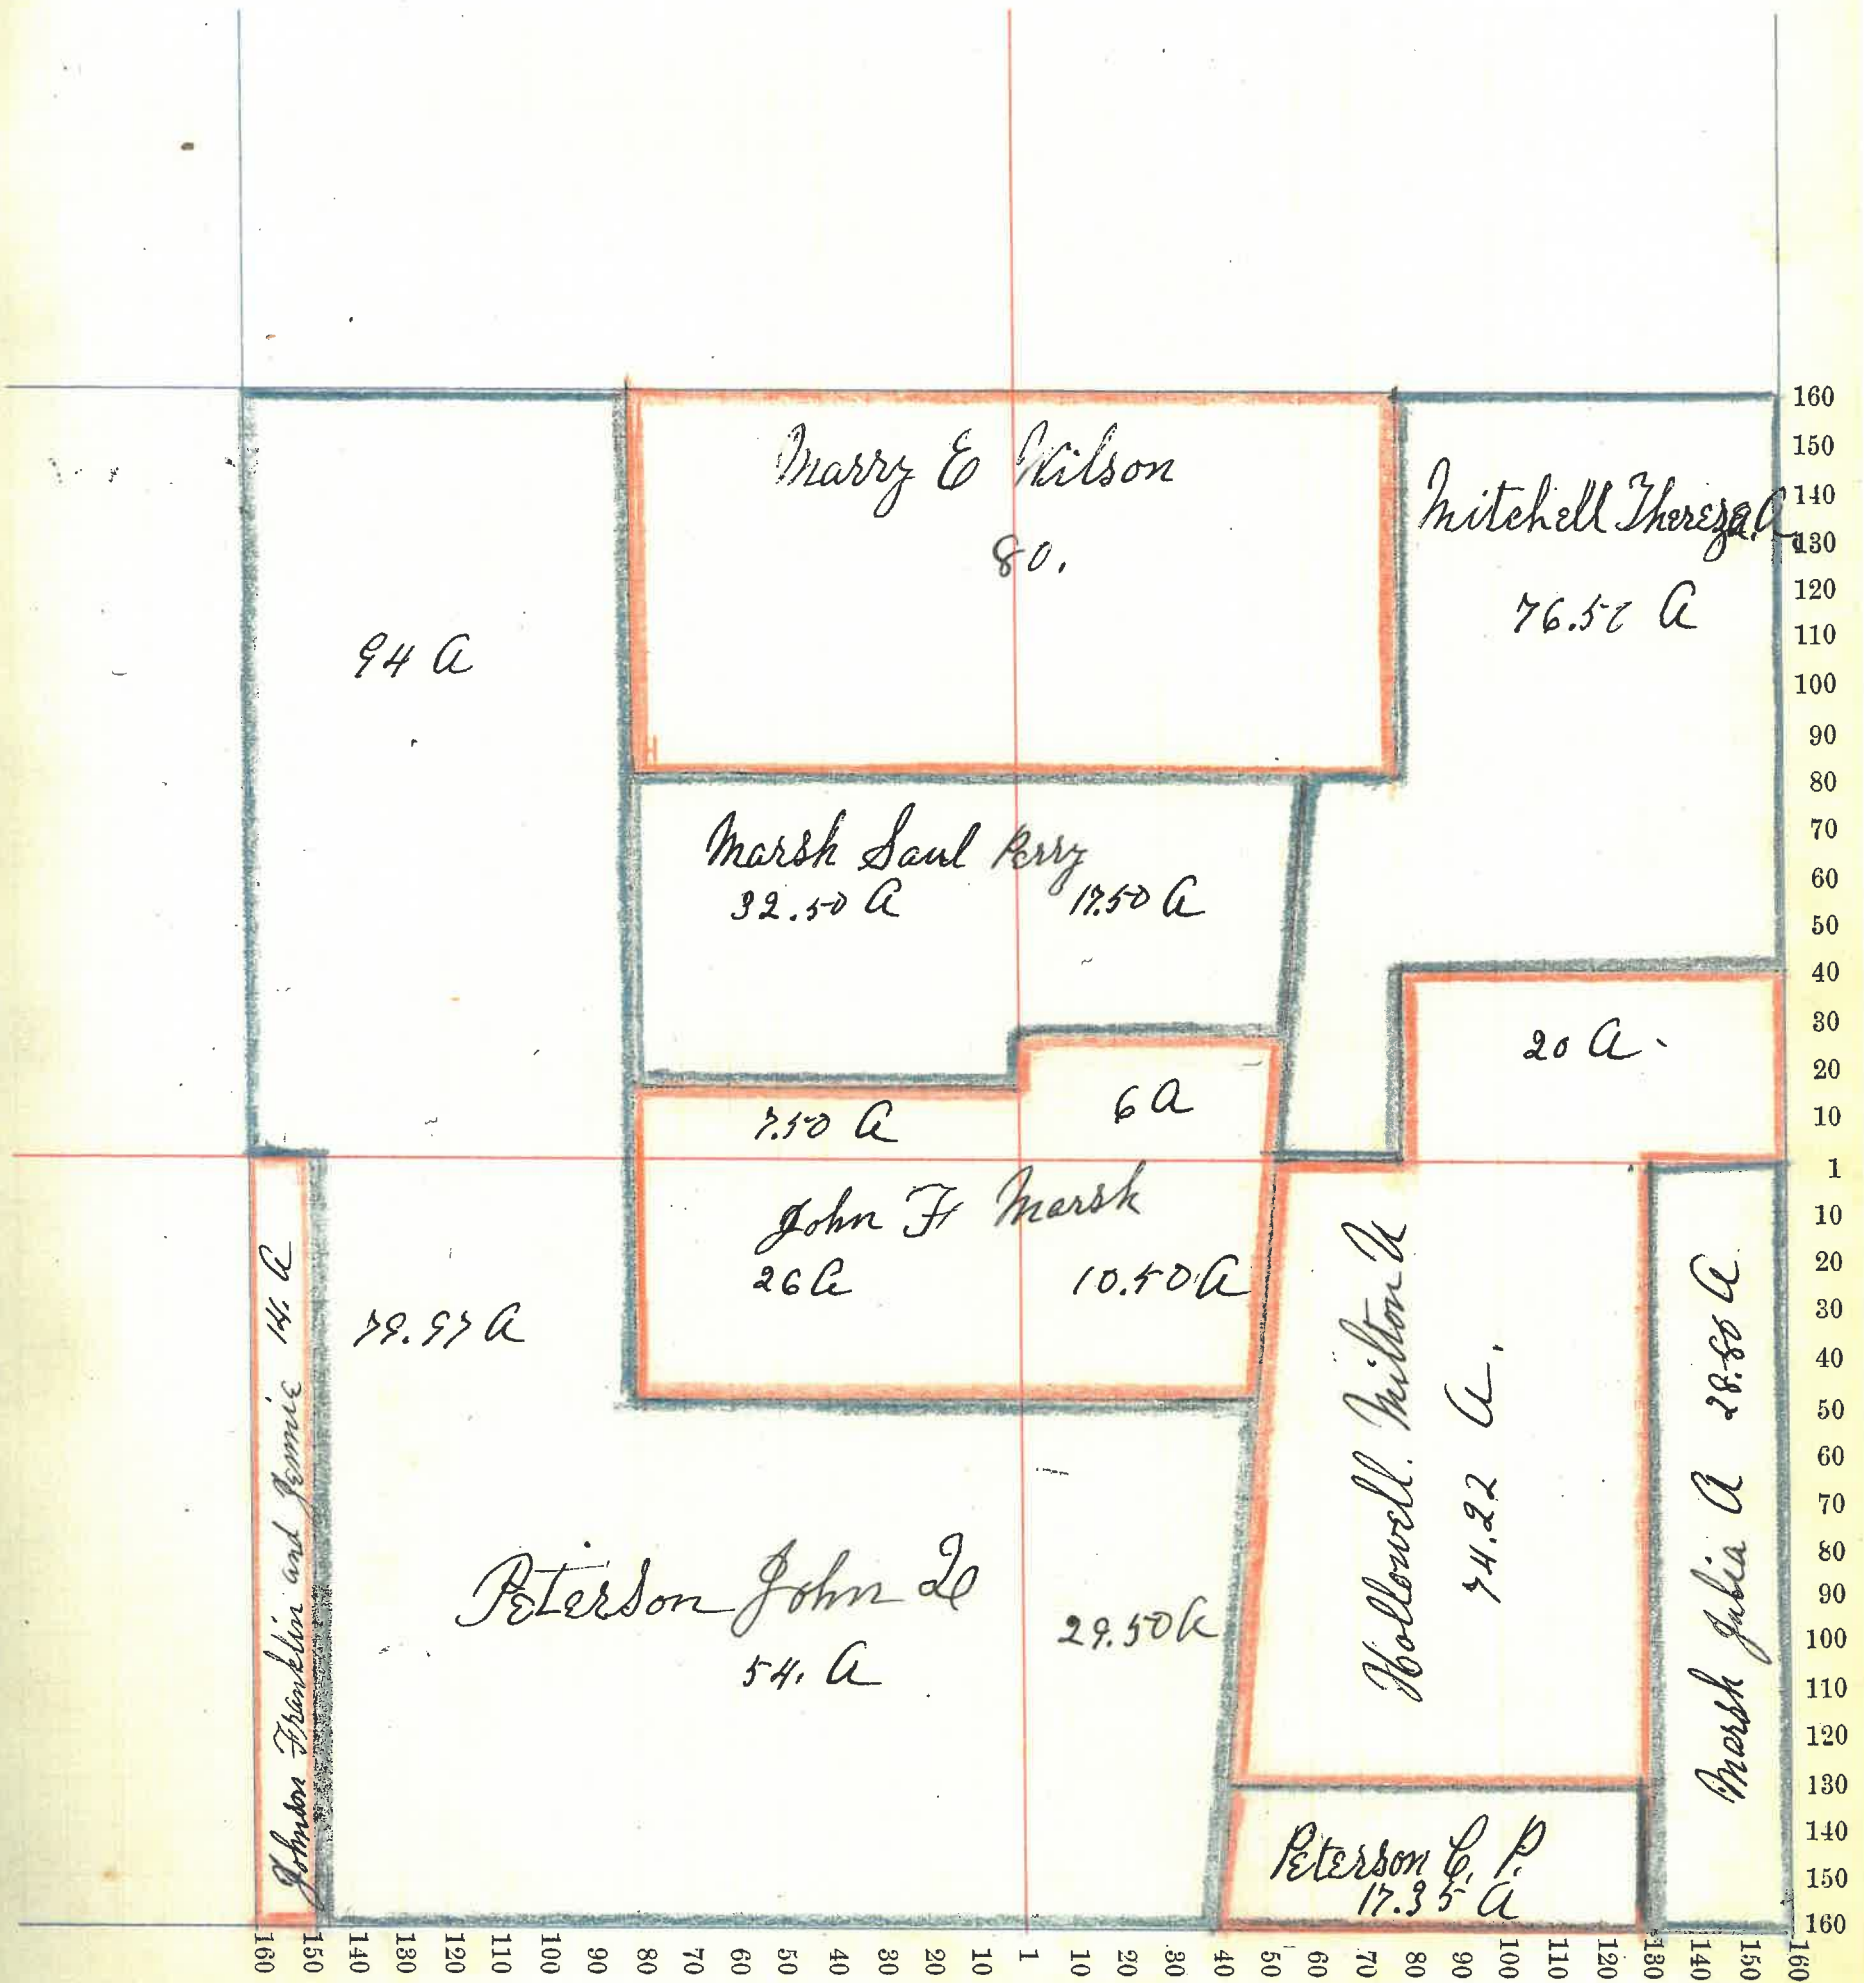 Marry E Wilson
80.
Mitchell Thereza. A
76.50 A
94 A
Marsh Saul Perry
32.50 A 17.50 A
20 A.
7.50 A 6 A
John F Marsh
26 A 10.50 A
79.97 A
Johnson Franklin and Jennie 14. A
Hollowell. Milton
74.22 A.
Marsh Julia A 28.80 A
Peterson John
54. A
29.50 A
Peterson C. P.
17.35 A
160
150
140
130
120
110
100
90
80
70
60
50
40
30
20
10
1
10
20
30
40
50
60
70
80
90
100
110
120
130
140
150
160
160 150 140 130 120 110 100 90 80 70 60 50 40 30 20 10 1 10 20 30 40 50 60 70 80 90 100 110 120 130 140 150 160